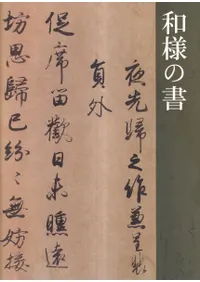 和様の書
夜先歸之作兼呈
員外
促席留歡日未曛遠
坊思歸已紛々無妨接